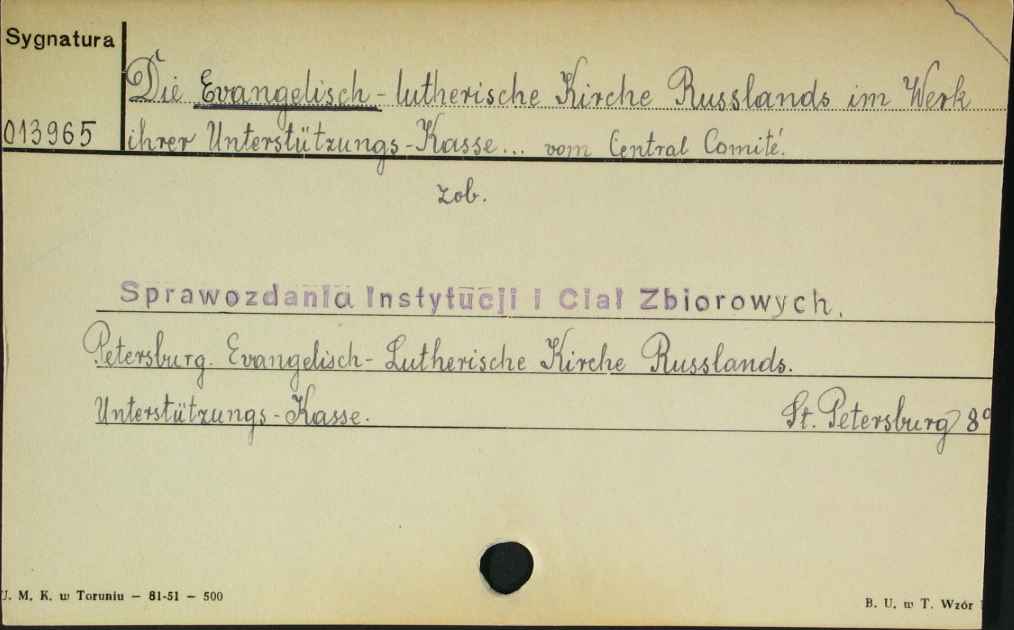 Sygnatura
Die Evangelisch-lutherische Kirche Russlands im Werk
013965 ihrer Unterstützungs-Kasse... vom Central Comité.
zob.
Sprawozdania Instytucji i Ciał Zbiorowych.
Petersburg. Evangelisch-Lutherische Kirche Russlands.
Unterstützungs-Kasse. St. Petersburg 8°
U. M. K. w Toruniu — 81-51 — 500
B. U. w T. Wzór